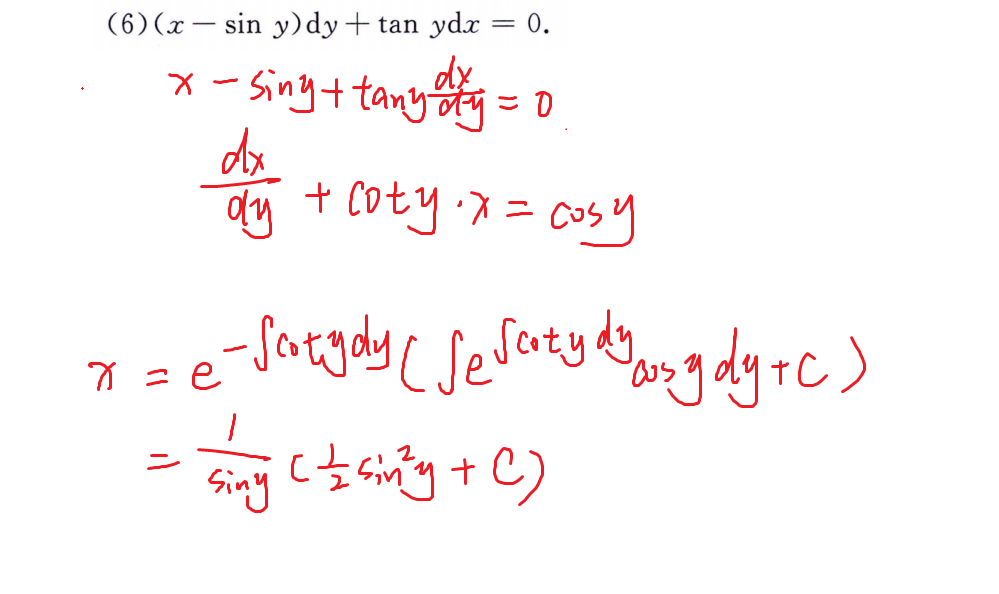 (6)(x − sin y)dy + tan ydx = 0.
x − siny + tany dx/dy = 0
dx/dy + coty · x = cosy
x = e^{−∫cotydy} (∫e^{∫cotydy} cosy dy + C)
= 1/siny (1/2 sin²y + C)